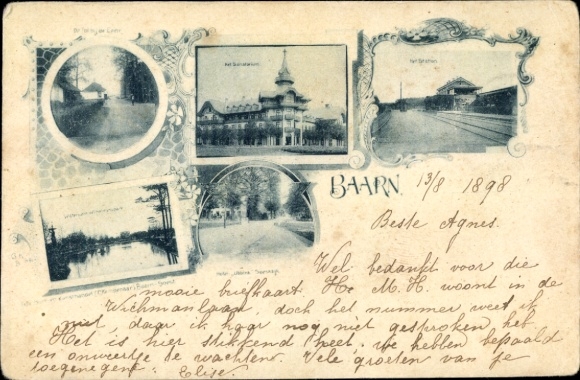 Het Sanatorium
Het Station
BAARN. 13/8 1898
Beste Agnes.
Wel bedankt voor die
mooie briefkaart. H. M. H. woont in de
Wichmanlaan, doch het nummer weet ik
niet, daar ik haar nog niet gesproken heb
Het is hier stikkend heet. We hebben bepaald
een onweertje te wachten. Vele groeten van je
toegenegene: Elise.